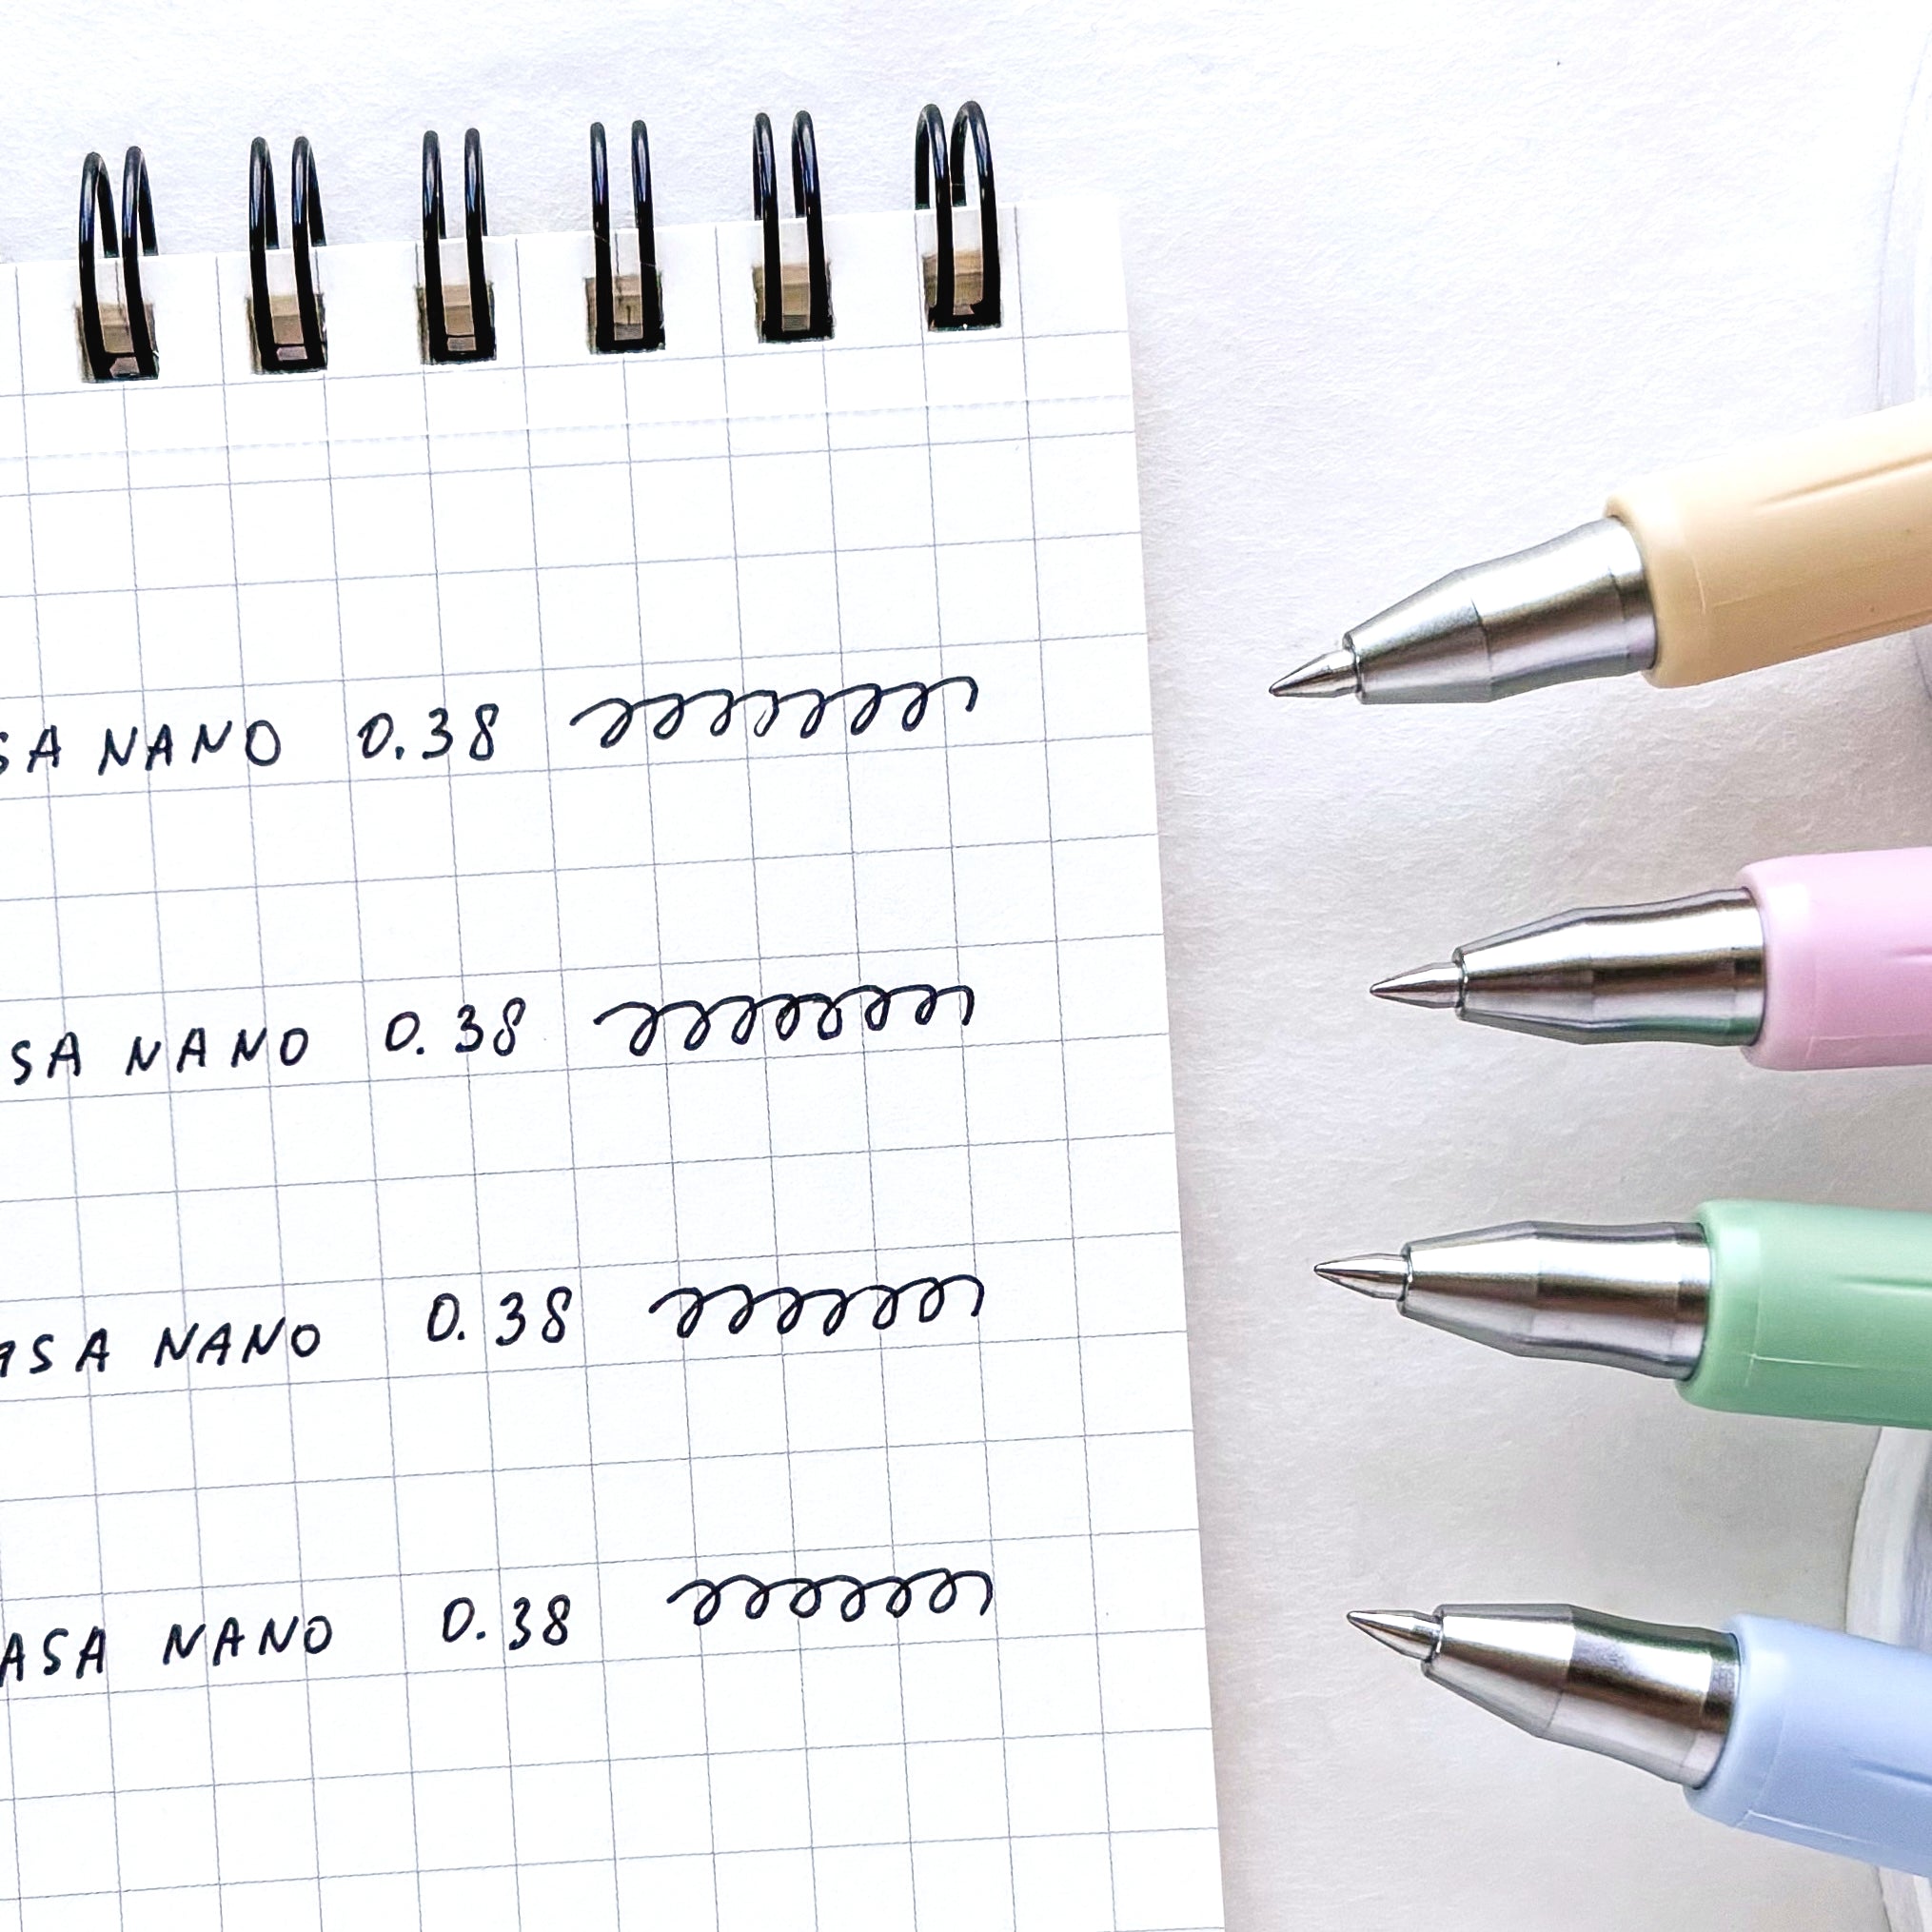 SA NANO 0.38
SA NANO 0.38
ASA NANO 0.38
ASA NANO 0.38